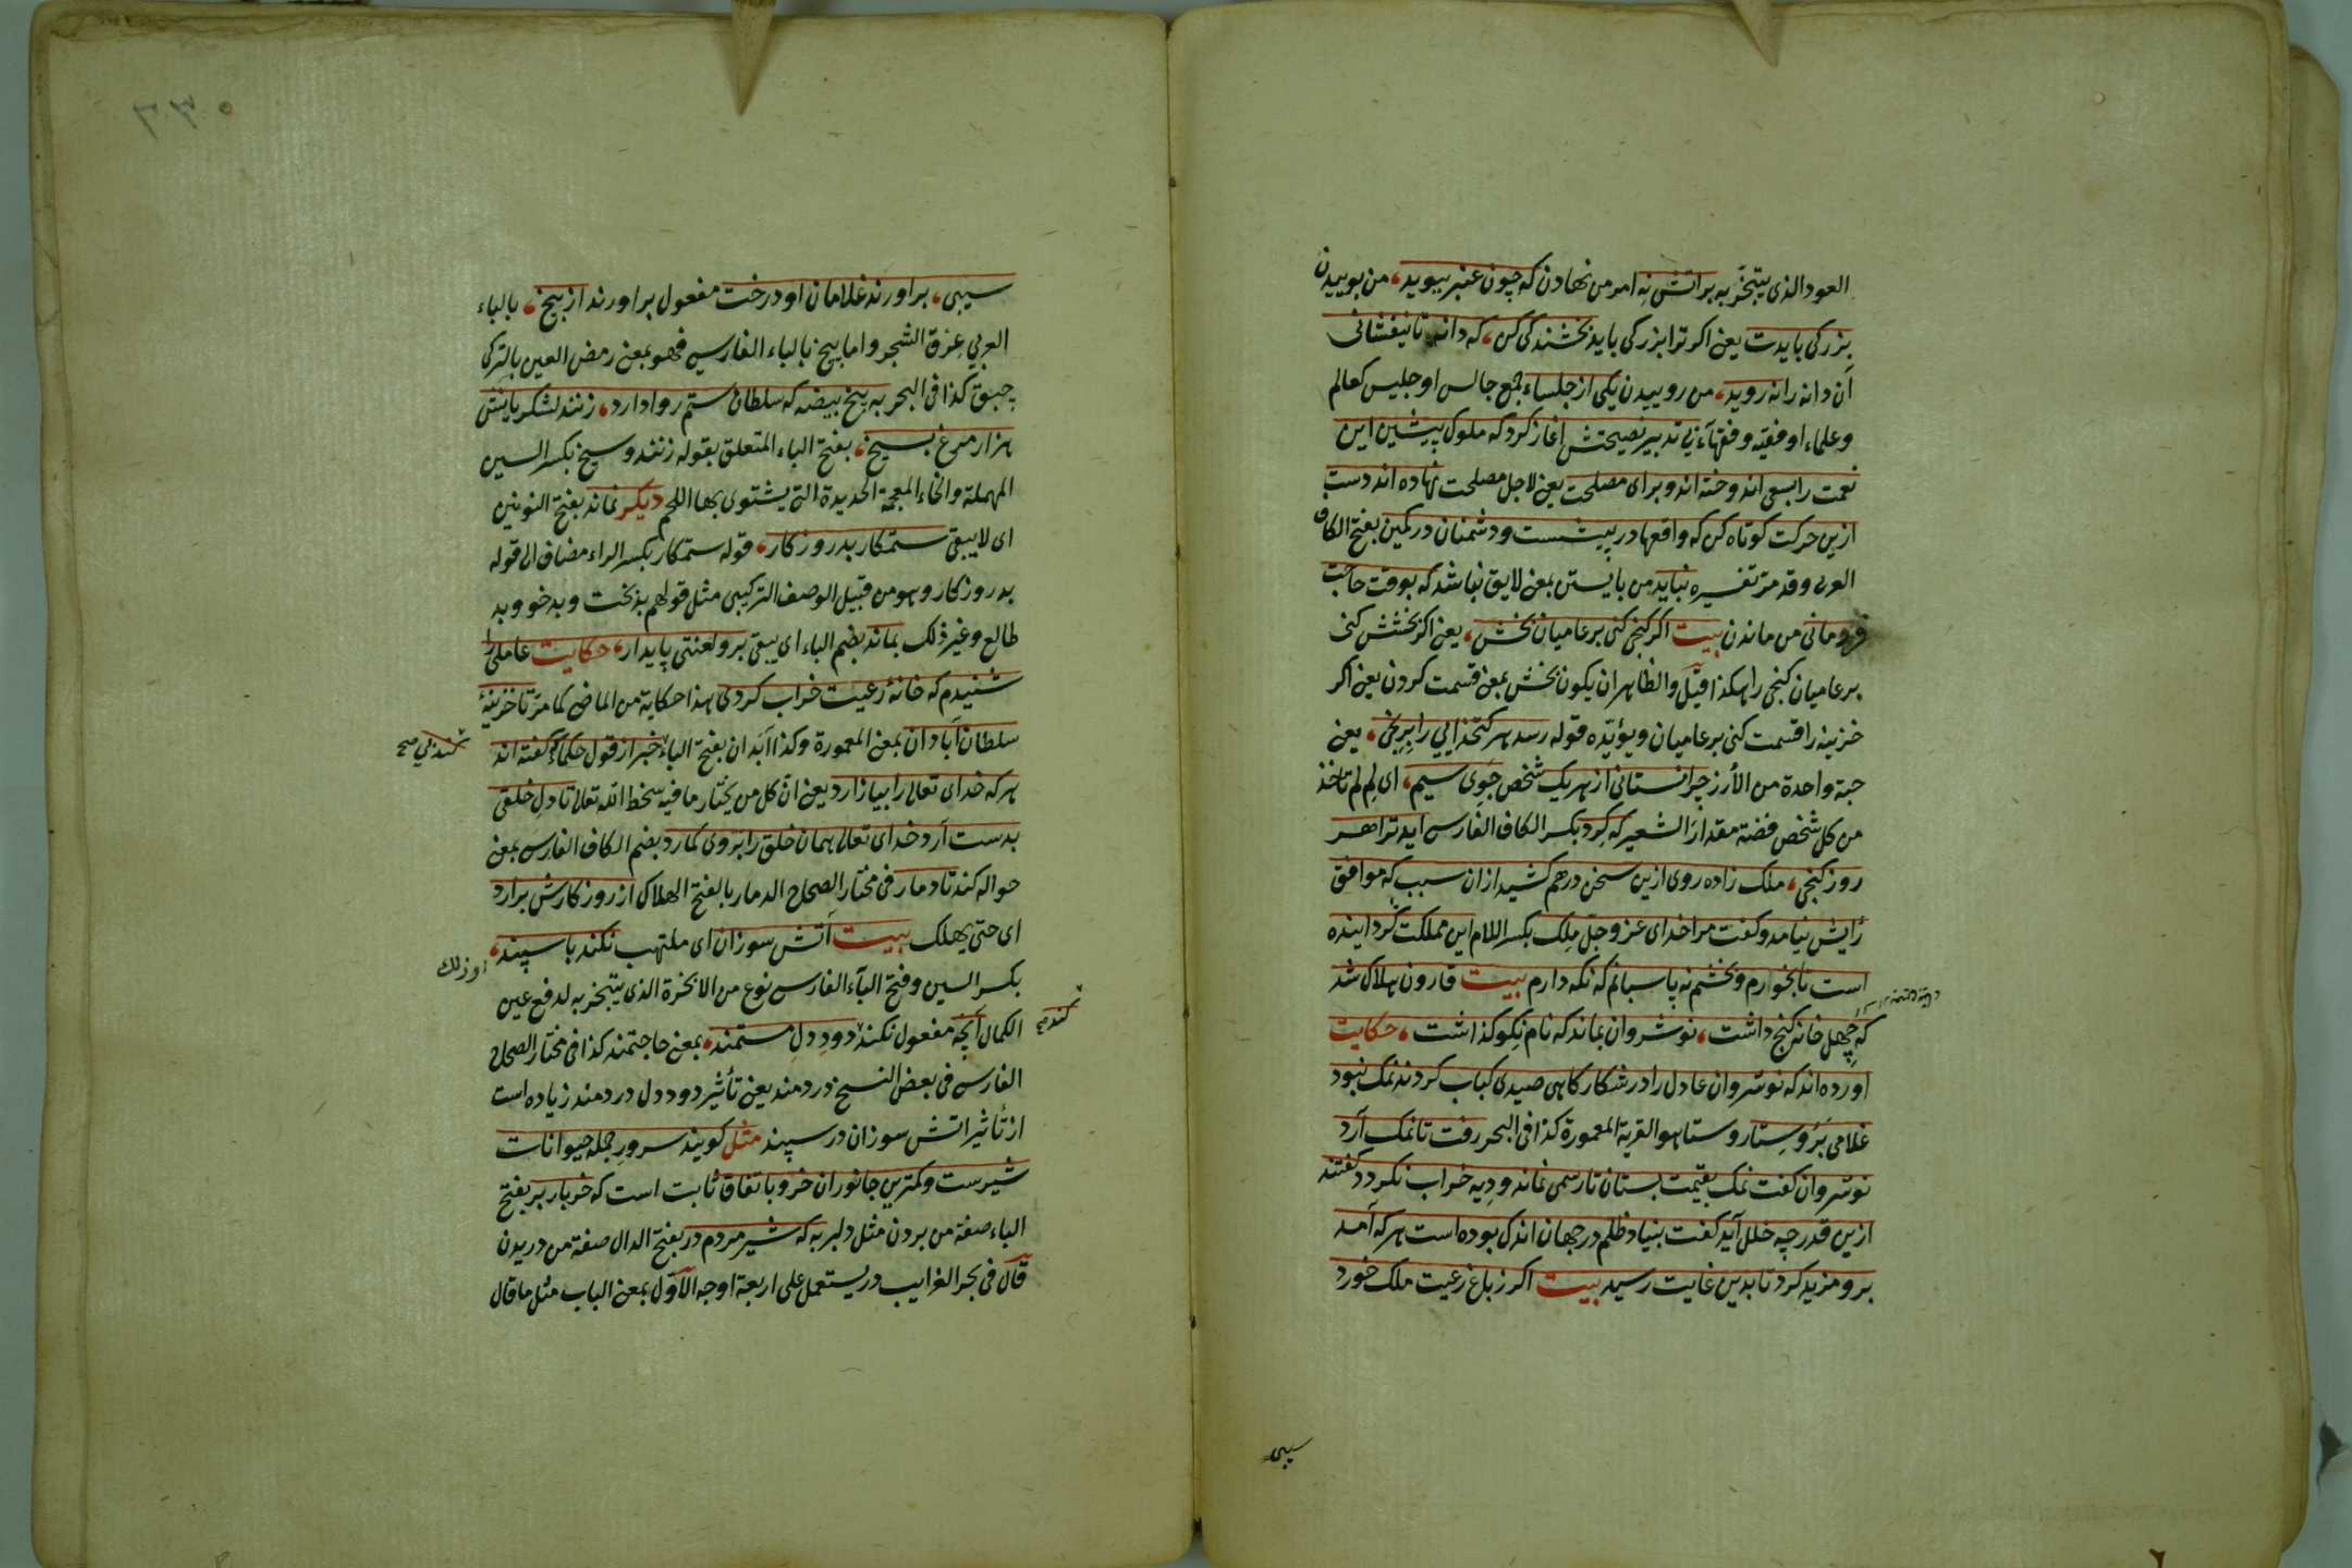 العود الذي يتبخر به بر اتش نه امر من نهادن كه چون عنبر ببويد، من بوييدن
بزركى بايدت يعنى اكر ترا بزركى بايد بخشندكى كن، كه دانه تا نيفشانى
آن دانه را نه رويد، من روييدن يكى از جلساء جمع جالس او جليس كعالم
وعلماء او فقيه وفقهاء بى تدبير نصيحتش اغاز كرد كه ملوك پيشين اين
نعمت را بسعى اندوخته اند وبراى مصلحت يعنى لاجل مصلحت نهاده اند دست
ازين حركت كوتاه كن كه واقعها در پيشست ودشمنان در كمين بفتح الكاف
العربى وقد مر تفسيره نبايد من بايستن بمعنى لايق نباشد كه بوقت حاجت
فرومانى من ماندن بيت اكر كنجى كنى بر عاميان بخش، يعنى اكر بخشش كنى
بر عاميان كنجى را هكذا قيل والظاهر ان يكون بخش بمعنى قسمت كردن يعنى اكر
خزينه را قسمت كنى بر عاميان ويؤيده قوله رسد هر كتخدايى را برنجى، يعنى
حبة واحدة من الأرز چرا نستانى از هر يك شخص جوى سيم، اى لم لم تاخذ
من كل شخص فضة مقدار الشعير كه كرد بكسر الكاف الفارسى ايد ترا هر
روز كنجى، ملك زاده روى ازين سخن درهم كشيد ازان سبب كه موافق
رايش نيامد وكفت مرا خداى عز وجل ملك بكسر اللام اين مملكت كردانيده
است تا بخورم وبخشم نه پاسبانم كه نكه دارم بيت قارون هلاك شد
كه چهل خانه كنج داشت، نوشروان نماند كه نام نكو كذاشت، حكايت
اورده اند كه نوشروان عادل را در شكار كاهى صيدى كباب كردند نمك نبود
غلامى بروستا روستا هو القرية المعمورة كذا فى البحر رفت تا نمك آرد
نوشروان كفت نمك بقيمت بستان تا رسمى نماند وديه خراب نكردد كفتند
ازين قدر چه خلل آيد كفت بنياد ظلم در جهان اندك بوده است هر كه آمد
برو مزيد كرد تا بدين غايت رسيد بيت اكر ز باغ رعيت ملك خورد
سيبى
سيبى، براورند غلامان او درخت مفعول براورند از بيخ، بالباء
العربى عرق الشجر واما پيخ بالباء الفارسى فهو بمعنى رمض العين بالتركى
چبق كذا فى البحر به پنج بيضه كه سلطان ستم روا دارد، زنند لشكريانش
هزار مرغ بسيخ، بفتح الباء المتعلق بقوله زنند وسيخ بكسر السين
المهملة والخاء المعجمة الحديدة التى يشتوى بها اللحم ديكر نماند بفتح النونين
اى لا يبقى ستمكار بد روزكار، قوله ستمكار بكسر الراء مضاف الى قوله
بد روزكار وهو من قبيل الوصف التركيبى مثل قولهم بدبخت وبد خو وبد
طالع وغير ذلك بماند بضم الباء اى يبقى برو لعنتى پايدار، حكايت عاملى را
شنيدم كه خانهٔ رعيت خراب كردى هذا حكاية من الماضى كما مر تا خزينهٔ
سلطان آبادان بمعنى المعمورة وكذا آبدان بفتح الباء خبر از قول حكما كه كفته اند
كند بى صح
هر كه خداى تعالى را بيازارد يعنى ان كل من يختار ما فيه سخط الله تعالى تا دل خلقى
بدست آرد خداى تعالى همان خلق را بروى كمارد بضم الكاف الفارسى بمعنى
حواله كند تا دمار فى مختار الصحاح الدمار بالفتح الهلاك از روزكارش برارد
اى حتى يهلك بيت آتش سوزان اى ملتهب نكند با سپند،
اوزلك
بكسر السين وفتح الباء الفارسى نوع من الابخرة الذى يتبخر به لدفع عين
الكمال آنچه مفعول نكند دود دل مستمند، بمعنى حاجتمند كذا فى مختار الصحاح
كند صح
الفارسى فى بعض النسخ دردمند يعنى تأثير دود دل دردمند زياده است
از تأثير اتش سوزان در سپند مثل كويند سرور جمله حيوانات
شيرست وكمترين جانوران خر وباتفاق ثابت است كه خر باربر بفتح
الباء صفة من بردن مثل دلبر به كه شير مردم در بفتح الدال صفة من دريدن
قال فى بحر الغرايب در يستعمل على اربعة اوجه الاول بمعنى الباب مثل ما قال